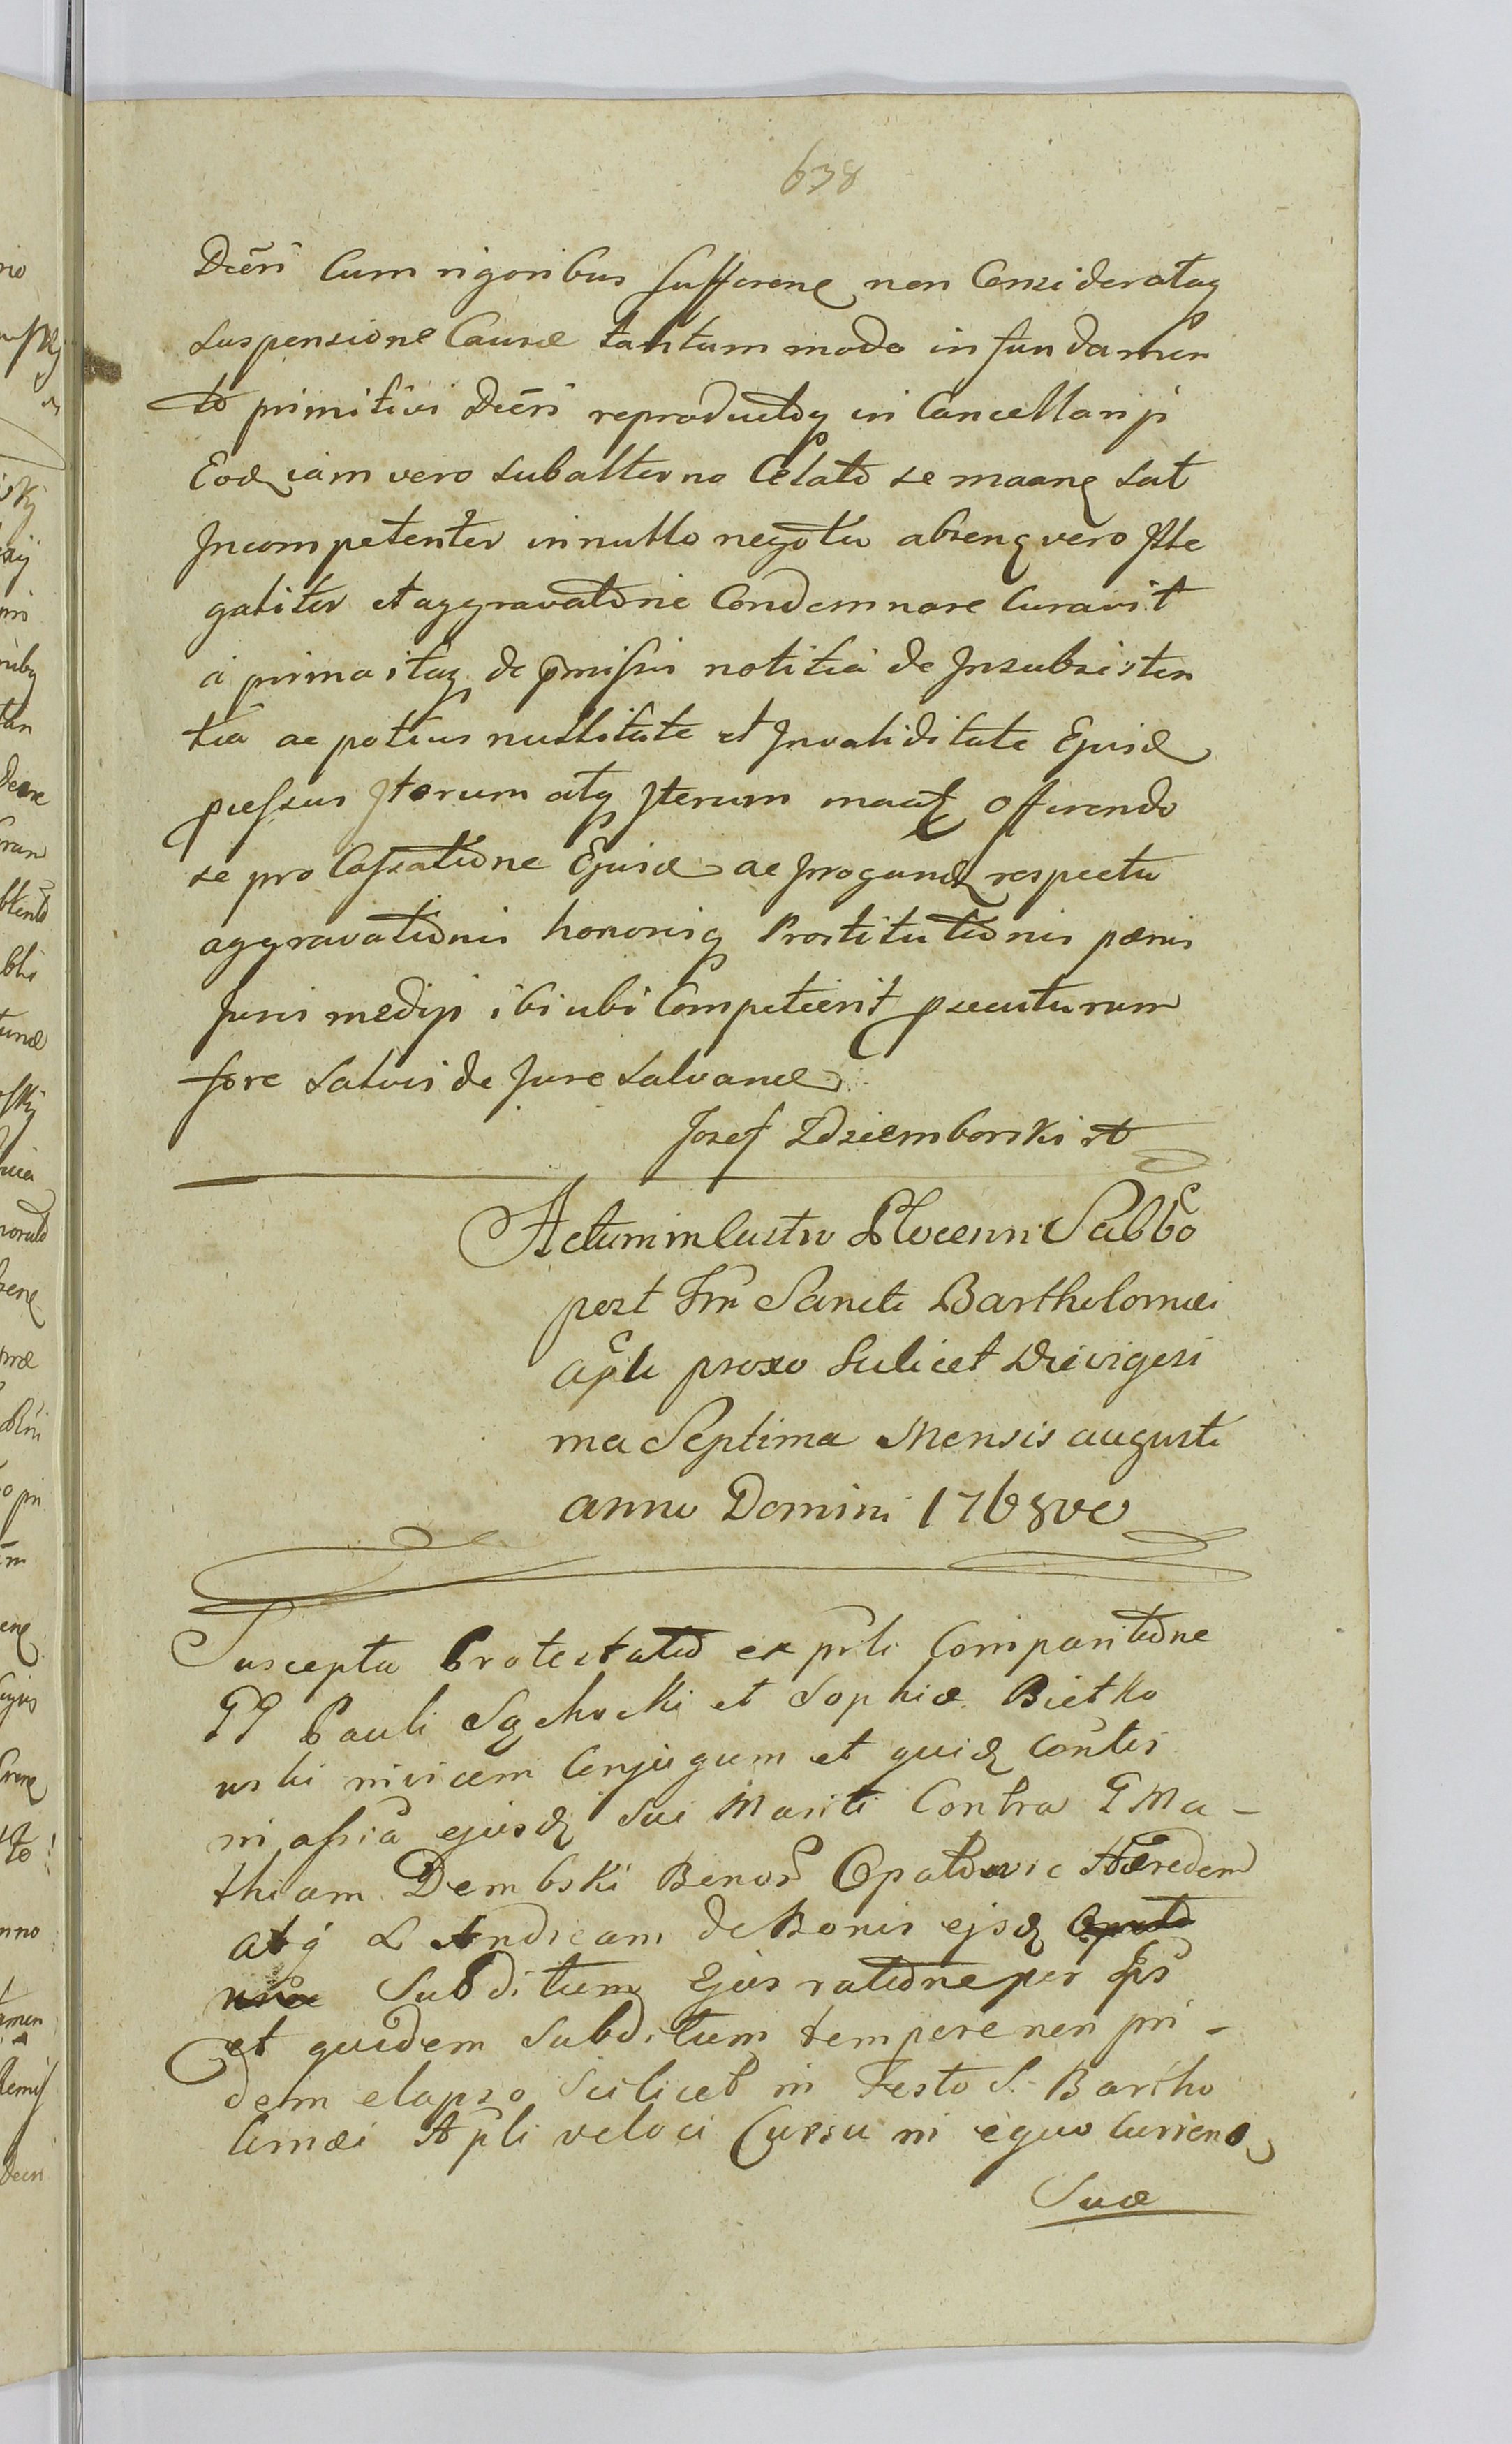 638
Decri Cum rigoribus sufferen non Considerataq
suspensione Causæ tantum modo in fundamen
to primitivi Decri reproductoq in Cancellariji
Eoæ iam vero subalterno Celato se maane sat
Incompetenter in nullo negotio absenq vero Ille
galiter et aggravatorie Condemnare Curavit
a prima itaq de pmissis notitia de Insubsisten
tia ac potius nullitate et Invaliditate Ejusd
pcessus Iterum atq Iterum maaf offerendo
se pro Cassatione Ejusd ac Irrogand respectu
aggravationis honorisq Prostitutionis pœnis
Juris medijs ibi ubi Competierit psecuturum
fore salvis de Jure salvand
Josef Zdziemborski
Actum in Castro Plocensi Sabbo
post Fm Sancti Bartholomæi
apli proxo Scilicet Die vigesi
ma Septima Mensis augusti
anno Domini 1768vo
Suscepta Protestatio ex psti Comparitione
GG Pauli Sochocki et Sophiæ Bietko
wski invicem Conjugum et quid Contis
in assia ejusd sui Mariti Contra G Ma-
thiam Dembski Bonor Opatowie Hæredem
atq L Andream de Bonis ejsd Opato
wie Subditum Ejus ratione per ss
et quidem Subditum tempore non pri-
dem elapso Scilicet in Festo S. Bartho
lomæi Apli veloci Cursu in equo Curiend
Suæ